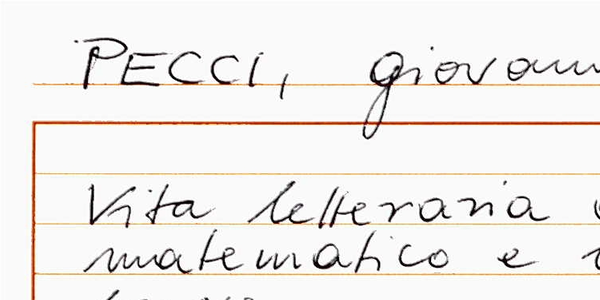 PECCI,
Vita letteraria
matematico e